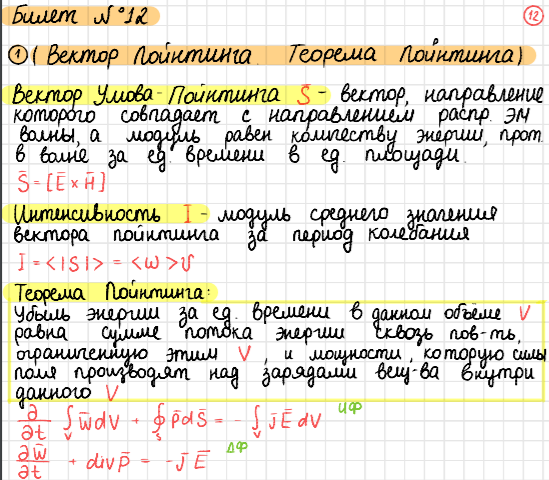 Билет №12
12
① (Вектор Пойнтинга. Теорема Пойнтинга)
Вектор Умова-Пойнтинга S̄ - вектор, направление
которого совпадает с направлением распр. ЭМ
волны, а модуль равен количеству энергии, прот.
в волне за ед. времени в ед. площади.
S̄ = [Ē × H̄]
Интенсивность I - модуль среднего значения
вектора пойнтинга за период колебания
I = <|S|> = <w>υ
Теорема Пойнтинга:
Убыль энергии за ед. времени в данном объёме V
равна сумме потока энергии сквозь пов-ть,
ограниченную этим V, и мощности, которую силы
поля производят над зарядами вещ-ва внутри
данного V
∂/∂t ∫_V w̄dV + ∮_S P̄dS̄ = - ∫_V j̄Ē dV ИФ
∂w̄/∂t + divP̄ = -j̄Ē ДФ